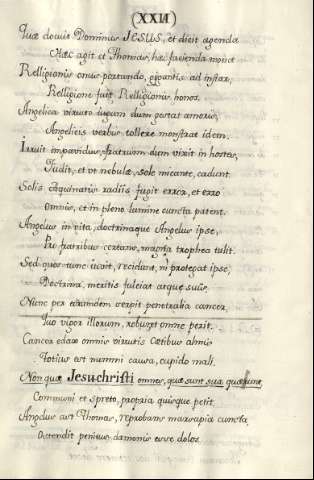 (XXII)
Quæ docuit Dominus JESUS, et dicit agenda
Hæc agit et Thomas, hæc facienda monet
Relligionis onus portando, gigantis ad instar,
Relligione fuit Relligionis honos.
Angelica virtute iugum dum gestat amoris
Angelicis verbis tollere monstrat idem.
Irruit impavidus, fratrum dum vixit in hostes,
Fudit, et ut nebulæ, sole micante, cadunt
Solis radiis fugit error, et erro
Omnis, et in pleno lumine cuncta patent.
Angelus in vita, doctrinaque Angelus ipse,
Pro fratribus certans, magna trophea tulit.
Sed quos tunc vicit, recidunt, ni protegat ipse,
Doctrina, meritis fulciat atque suis.
Nunc per eosdem serpit penetralia cancer,
Quo vigor illorum, robur et omne perit.
Cancer edax omnis virtutis Cœtibus almis
Totius est mundi causa, cupido mali.
Non quæ Jesuchristi omnes, quæ sunt sua quærunt,
Communi et spreto, propria quisque petit.
Angelus ast Thomas, reprobans marsupia cuncta,
Ostendit penitus dæmonis esse dolos.